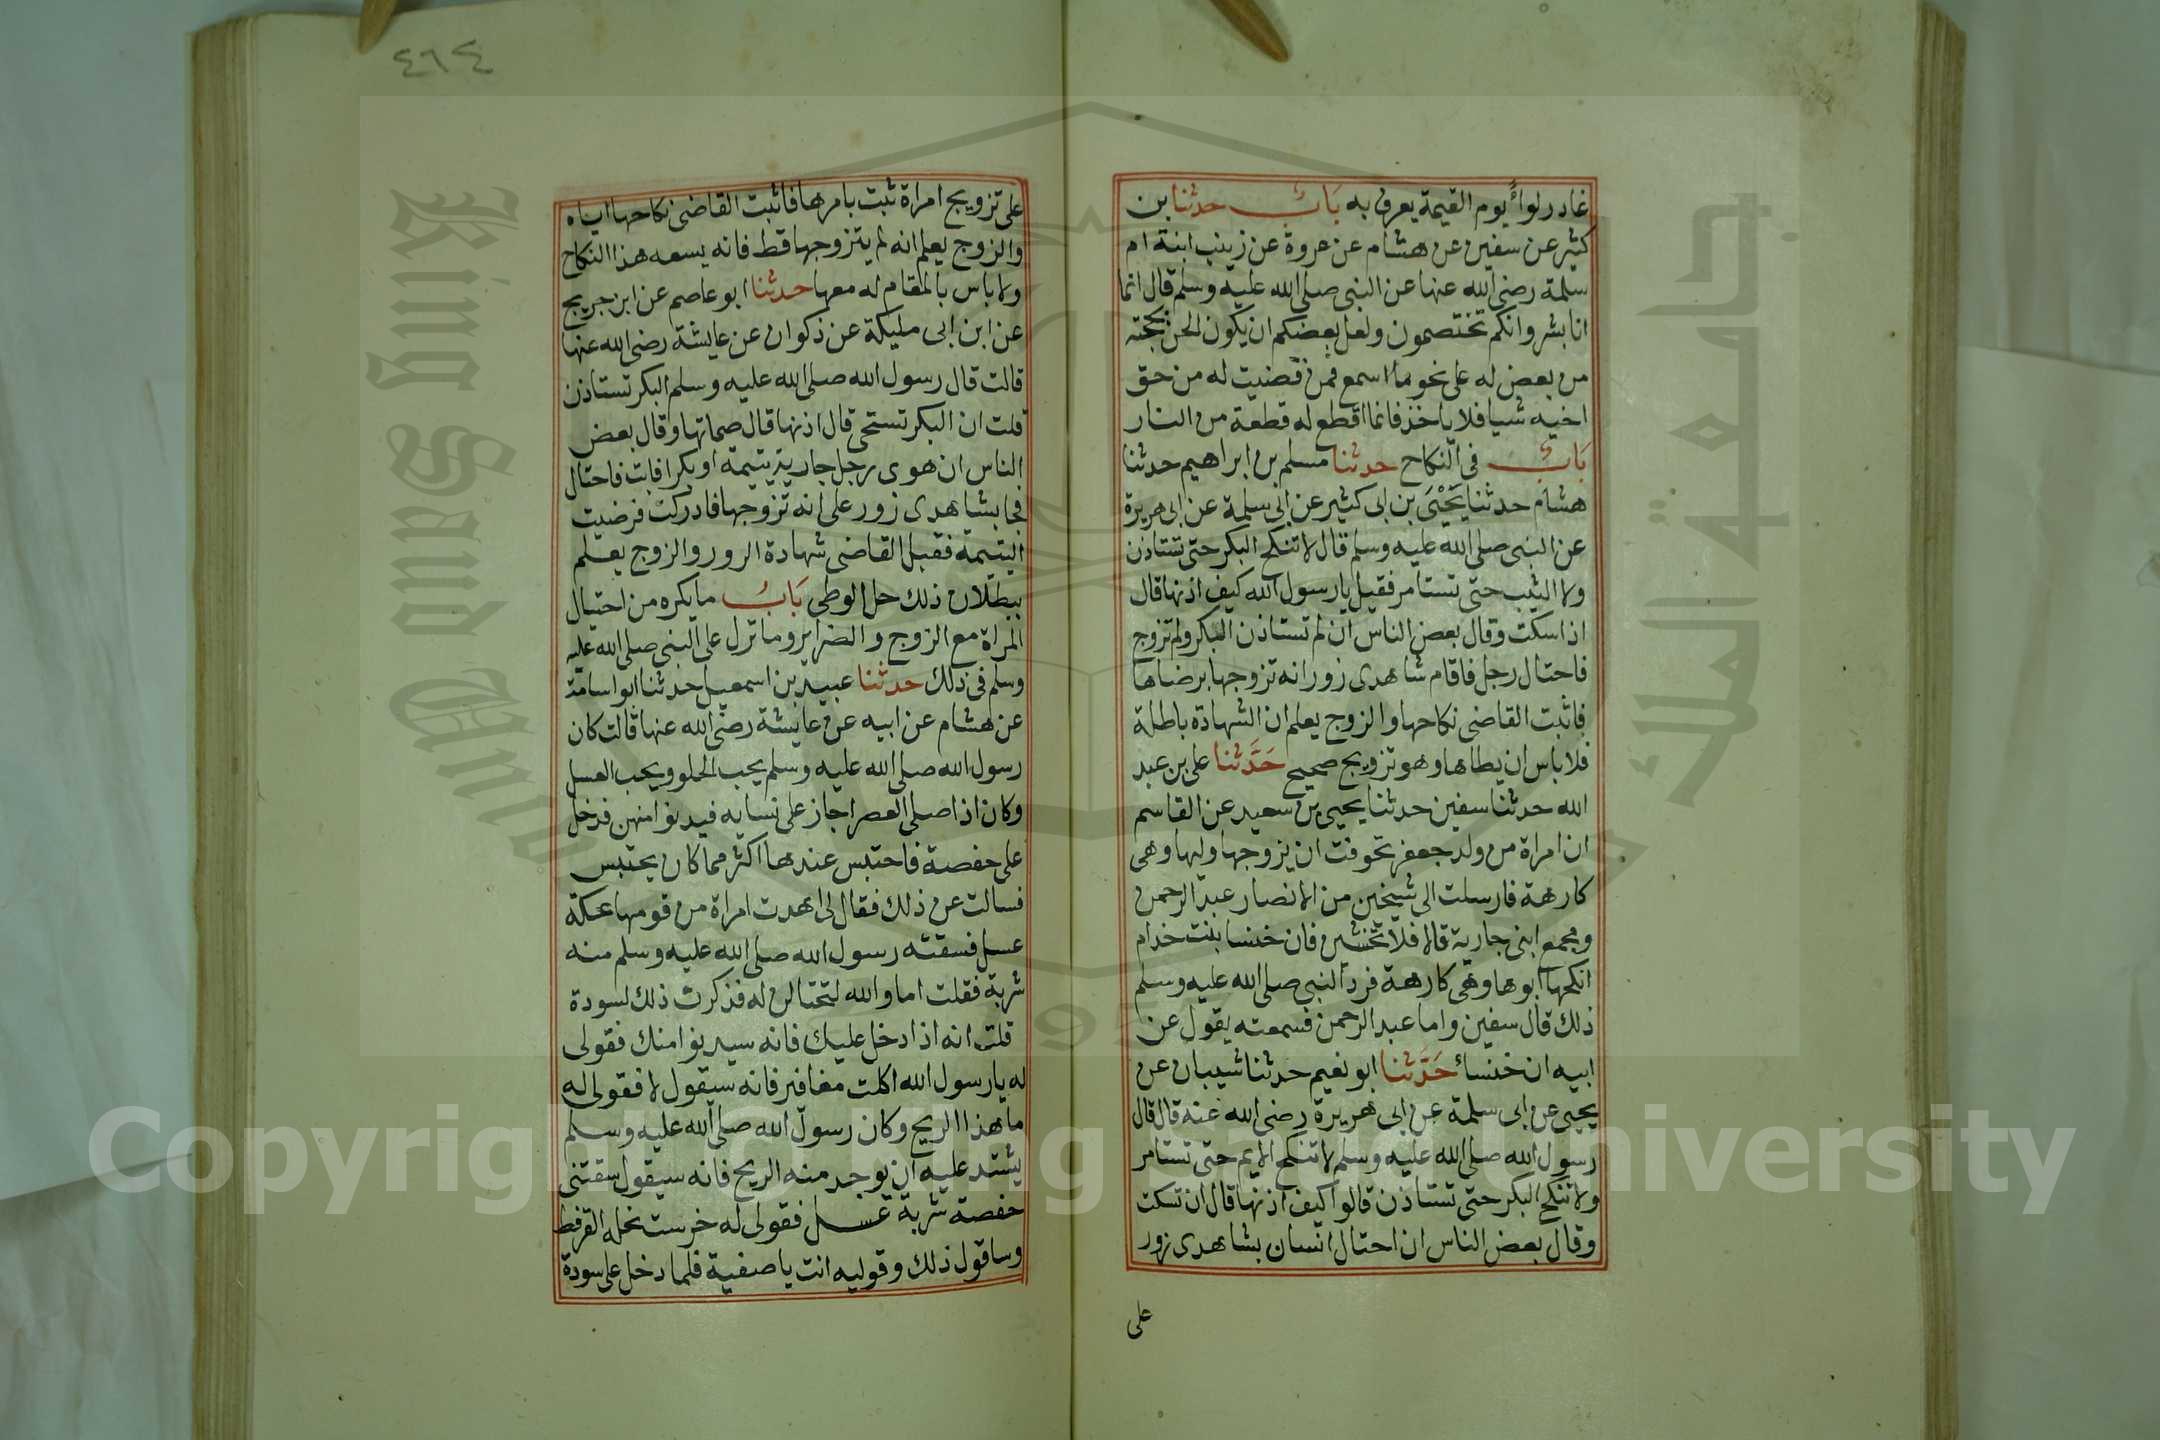 غادر لواء يوم القيمة يعرف به باب حدثنا بن
كثير عن سفين عن هشام عن عروة عن زينب ابنة ام
سلمة رضي الله عنها عن النبي صلى الله عليه وسلم قال انما
انا بشر وانكم تختصمون ولعل بعضكم ان يكون الحن بحجته
من بعض له على نحو ما اسمع فمن قضيت له من حق
اخيه شيا فلا ياخذ فانما اقطع له قطعة من النار
باب في النكاح حدثنا مسلم بن ابراهيم حدثنا
هشام حدثنا يحيى بن ابى كثير عن ابى سلمة عن ابى هريرة
عن النبي صلى الله عليه وسلم قال لا تنكح البكر حتى تستاذن
ولا الثيب حتى تستامر فقيل يا رسول الله كيف اذنها قال
اذا سكتت وقال بعض الناس ان لم تستاذن البكر ولم تزوج
فاحتال رجل فاقام شاهدى زور انه تزوجها برضاها
فاثبت القاضى نكاحها والزوج يعلم ان الشهادة باطلة
فلا باس ان يطاها وهو تزويج صحيح حدثنا على بن عبد
الله حدثنا سفين حدثنا يحيى بن سعيد عن القاسم
ان امراة من ولد جعفر تخوفت ان يزوجها وليها وهى
كارهة فارسلت الى شيخين من الانصار عبد الرحمن
ومجمع ابنى جارية قالا فلا تخشين فان خنسا بنت خدام
انكحها ابوها وهى كارهة فرد النبي صلى الله عليه وسلم
ذلك قال سفين واما عبد الرحمن فسمعته يقول عن
ابيه ان خنساء حدثنا ابو نعيم حدثنا شيبان عن
يحيى عن ابى سلمة عن ابى هريرة رضي الله عنه قال قال
رسول الله صلى الله عليه وسلم لا تنكح الايم حتى تستامر
ولا تنكح البكر حتى تستاذن قالوا كيف اذنها قال ان تسكت
وقال بعض الناس ان احتال انسان بشاهدى زور
على
٤٦٤
على تزويج امراة ثيب بامرها فاثبت القاضى نكاحها اياه
والزوج يعلم انه لم يتزوجها قط فانه يسعه هذا النكاح
ولا باس بالمقام له معها حدثنا ابو عاصم عن ابن جريج
عن ابن ابى مليكة عن ذكوان عن عايشة رضي الله عنها
قالت قال رسول الله صلى الله عليه وسلم البكر تستاذن
قلت ان البكر تستحى قال اذنها قال صماتها وقال بعض
الناس ان هوى رجل جارية يتيمة او بكرا فابت فاحتال
فجا بشاهدى زور على انه تزوجها فادركت فرضيت
اليتيمة فقبل القاضى شهادة الزور والزوج يعلم
ببطلان ذلك حل الوطى باب ما يكره من احتيال
المراة مع الزوج والضراير وما نزل على النبي صلى الله عليه
وسلم فى ذلك حدثنا عبيد بن اسمعيل حدثنا ابو اسامة
عن هشام عن ابيه عن عايشة رضي الله عنها قالت كان
رسول الله صلى الله عليه وسلم يحب الحلو ويحب العسل
وكان اذا صلى العصر اجاز على نسايه فيدنوا منهن فدخل
على حفصة فاحتبس عندها اكثر مما كان يحتبس
فسالت عن ذلك فقال لى اهدت امراة من قومها عكة
عسل فسقته رسول الله صلى الله عليه وسلم منه
شربة فقلت اما والله لتحتالن له فذكرت ذلك لسودة
قلت انه اذا دخل عليك فانه سيدنوا منك فقولى
له يا رسول الله اكلت مغافير فانه سيقول لا فقولى له
ما هذا الريح وكان رسول الله صلى الله عليه وسلم
يشتد عليه ان يوجد منه الريح فانه سيقول سقتنى
حفصة شربة عسل فقولى له خرست نحله القرفط
وساقول ذلك وقوليه انت يا صفية فلما دخل على سودة
King Saud University
جامعة الملك سعود
Copyright © King Saud University